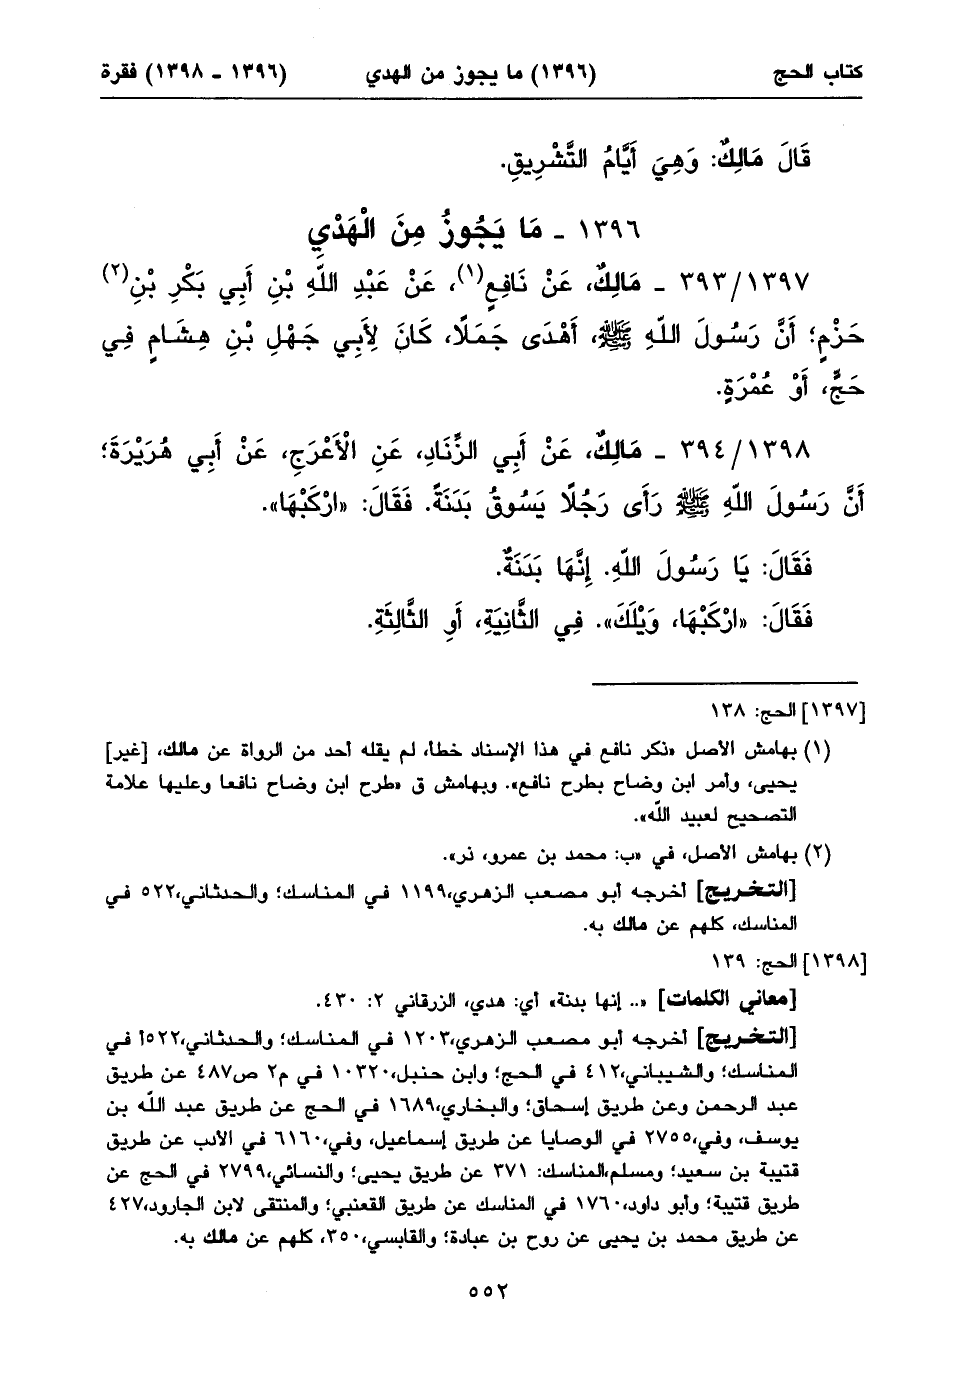 كتاب الحج (١٣٩٦) ما يجوز من الهدي (١٣٩٦ ـ ١٣٩٨) فقرة
قَالَ مَالِكٌ: وَهِيَ أَيَّامُ التَّشْرِيقِ.
١٣٩٦ ـ مَا يَجُوزُ مِنَ الْهَدْيِ
٣٩٣/١٣٩٧ ـ مَالِكٌ، عَنْ نَافِعٍ(١)، عَنْ عَبْدِ اللَّهِ بْنِ أَبِي بَكْرِ بْنِ(٢)
حَزْمٍ؛ أَنَّ رَسُولَ اللَّهِ ﷺ، أَهْدَى جَمَلًا، كَانَ لِأَبِي جَهْلِ بْنِ هِشَامٍ فِي
حَجٍّ، أَوْ عُمْرَةٍ.
٣٩٤/١٣٩٨ ـ مَالِكٌ، عَنْ أَبِي الزِّنَادِ، عَنِ الْأَعْرَجِ، عَنْ أَبِي هُرَيْرَةَ؛
أَنَّ رَسُولَ اللَّهِ ﷺ رَأَى رَجُلًا يَسُوقُ بَدَنَةً. فَقَالَ: «ارْكَبْهَا».
فَقَالَ: يَا رَسُولَ اللَّهِ. إِنَّهَا بَدَنَةٌ.
فَقَالَ: «ارْكَبْهَا، وَيْلَكَ». فِي الثَّانِيَةِ، أَوِ الثَّالِثَةِ.
[١٣٩٧] الحج: ١٣٨
(١) بهامش الأصل «ذكر نافع في هذا الإسناد خطأ، لم يقله أحد من الرواة عن مالك، [غير]
يحيى، وأمر ابن وضاح بطرح نافع». وبهامش ق «طرح ابن وضاح نافعا وعليها علامة
التصحيح لعبيد اللَّه».
(٢) بهامش الأصل، في «ب: محمد بن عمرو، نر».
[التخريج] أخرجه أبو مصعب الزهري،١١٩٩ في المناسك؛ والحدثاني،٥٢٢ في
المناسك، كلهم عن مالك به.
[١٣٩٨] الحج: ١٣٩
[معاني الكلمات] «.. إنها بدنة» أي: هدي، الزرقاني ٢: ٤٣٠.
[التخريج] أخرجه أبو مصعب الزهري،١٢٠٣ في المناسك؛ والحدثاني،٥٢٢أ في
المناسك؛ والشيباني،٤١٢ في الحج؛ وابن حنبل،١٠٣٢٠ في م٢ ص٤٨٧ عن طريق
عبد الرحمن وعن طريق إسحاق؛ والبخاري،١٦٨٩ في الحج عن طريق عبد اللَّه بن
يوسف، وفي،٢٧٥٥ في الوصايا عن طريق إسماعيل، وفي،٦١٦٠ في الأدب عن طريق
قتيبة بن سعيد؛ ومسلم،المناسك: ٣٧١ عن طريق يحيى؛ والنسائي،٢٧٩٩ في الحج عن
طريق قتيبة؛ وأبو داود،١٧٦٠ في المناسك عن طريق القعنبي؛ والمنتقى لابن الجارود،٤٢٧
عن طريق محمد بن يحيى عن روح بن عبادة؛ والقابسي،٣٥٠، كلهم عن مالك به.
٥٥٢